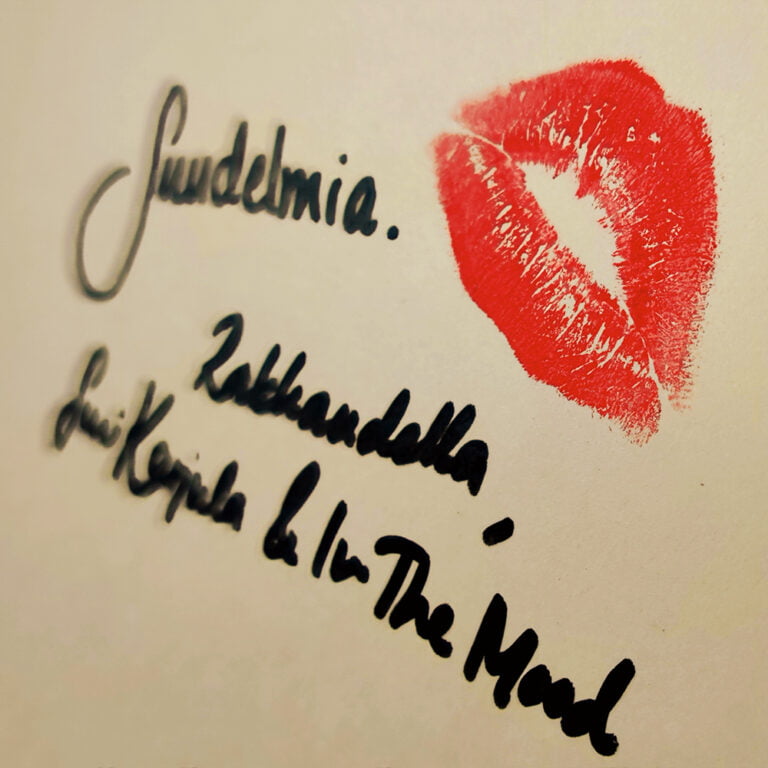 Suudelmia.
Rakkaudella,
Suvi Karjula & In The Mood